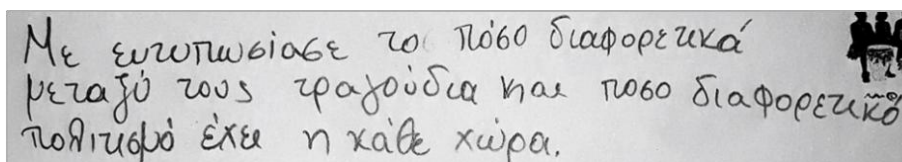 Με εντυπωσίασε το πόσο διαφορετικά
μεταξύ τους τραγούδια και ποσο διαφορετικό
πολιτισμό έχει η κάθε χώρα.